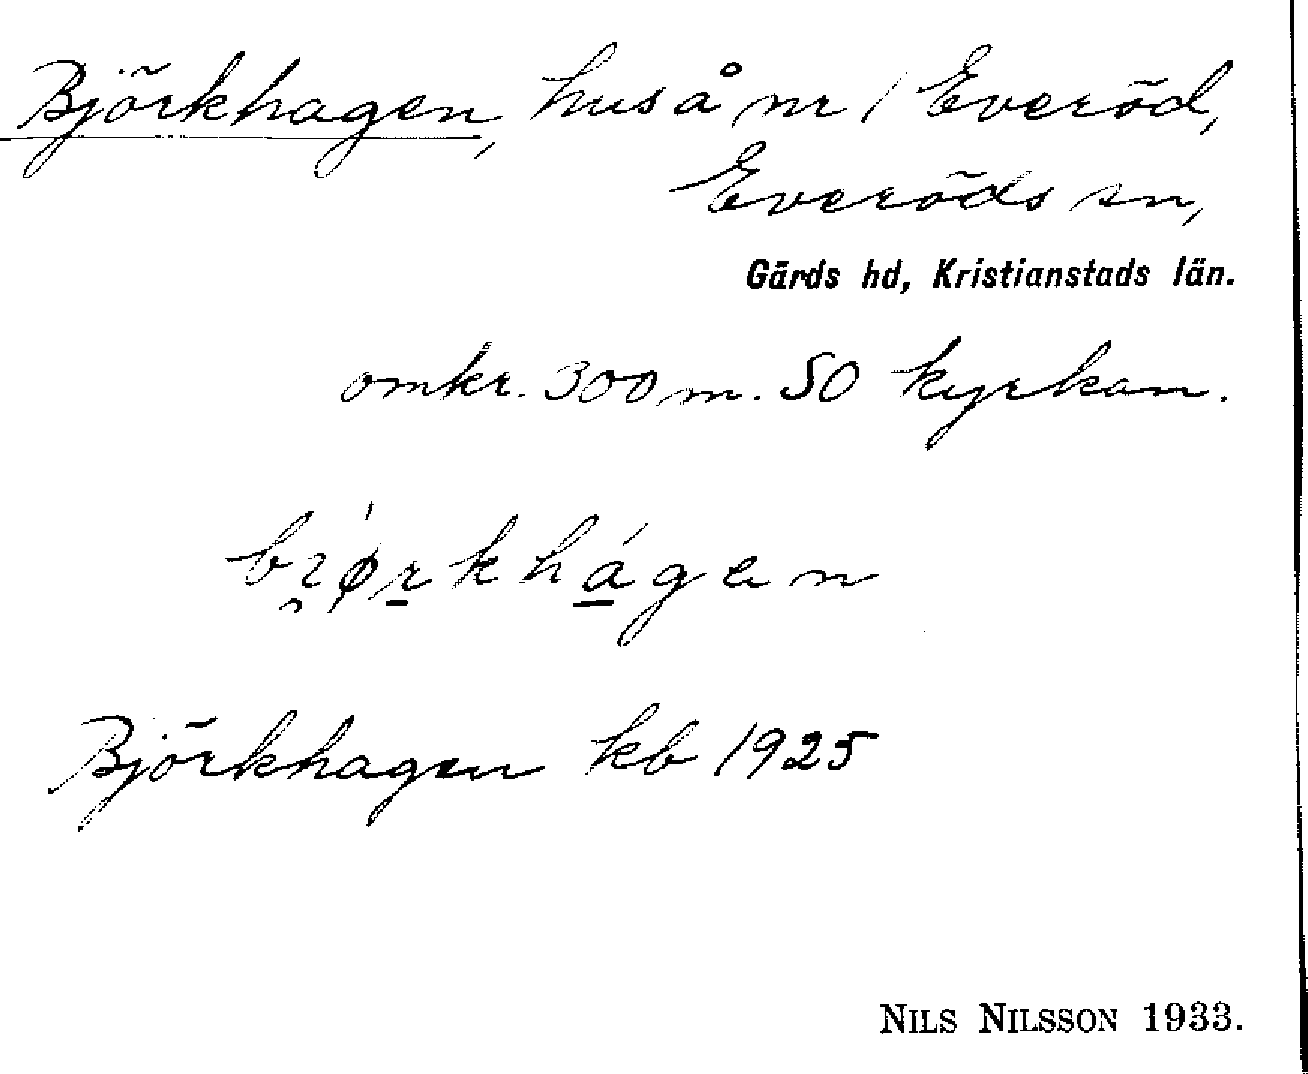 Björkhagen, hus å nr 1 Everöd,
Everöds sn,
Gärds hd, Kristianstads län.
omkr. 300 m. SO kyrkan.
Björkhagen kb 1925
NILS NILSSON 1933.